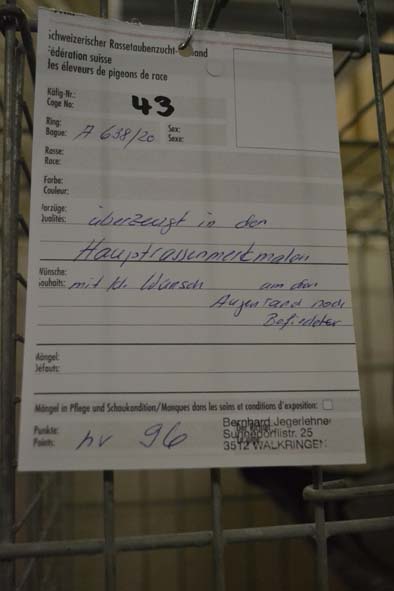 Schweizerischer Rassetaubenzucht-
Fédération suisse
des éleveurs de pigeons de race
Käfig-Nr.:
Cage No: 43
Ring:
Bague: A 638/20 Sex:
Sexe:
Rasse:
Race:
Farbe:
Couleur:
Vorzüge:
Qualités: überzeugt in den
Hauptrassenmerkmalen
Wünsche:
Souhaits: mit kl. Wunsch um den
Augenrand noch
Befiederter
Mängel:
Défauts:
Mängel in Pflege und Schaukondition/Manques dans les soins et conditions d'exposition:
Punkte:
Points: hv 96
Bernhard Jegerlehner
25
3512 WALKRINGEN